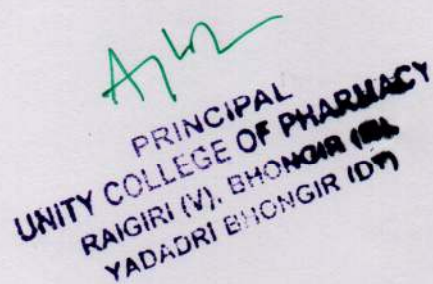 PRINCIPAL
UNITY COLLEGE OF PHARMACY
RAIGIRI (V), BHONGIR
YADADRI BHONGIR (DT)